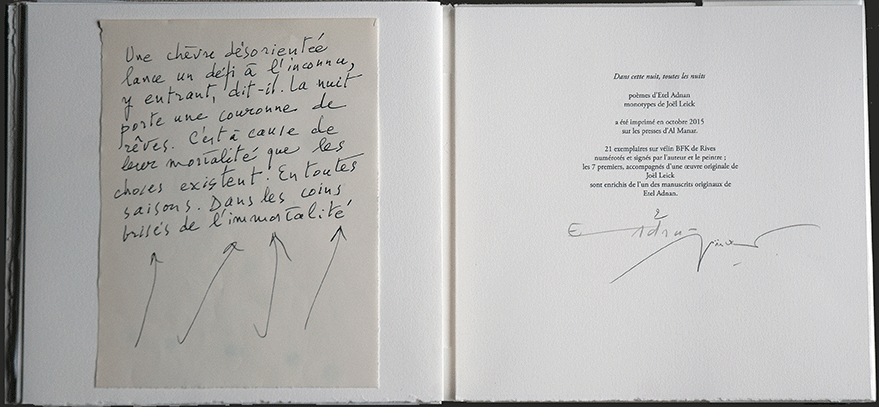 Une chèvre désorientée
lance un défi à l'inconnu,
y entrant, dit-il. La nuit
porte une couronne de
rêves. C'est à cause de
leur mortalité que les
choses existent. En toutes
saisons. Dans les coins
brisés de l'immortalité
Dans cette nuit, toutes les nuits
poèmes d'Etel Adnan
monotypes de Joël Leick
a été imprimé en octobre 2015
sur les presses d'Al Manar.
21 exemplaires sur vélin BFK de Rives
numérotés et signés par l'auteur et le peintre ;
les 7 premiers, accompagnés d'une œuvre originale de
Joël Leick
sont enrichis de l'un des manuscrits originaux de
Etel Adnan.
2
E Adnan